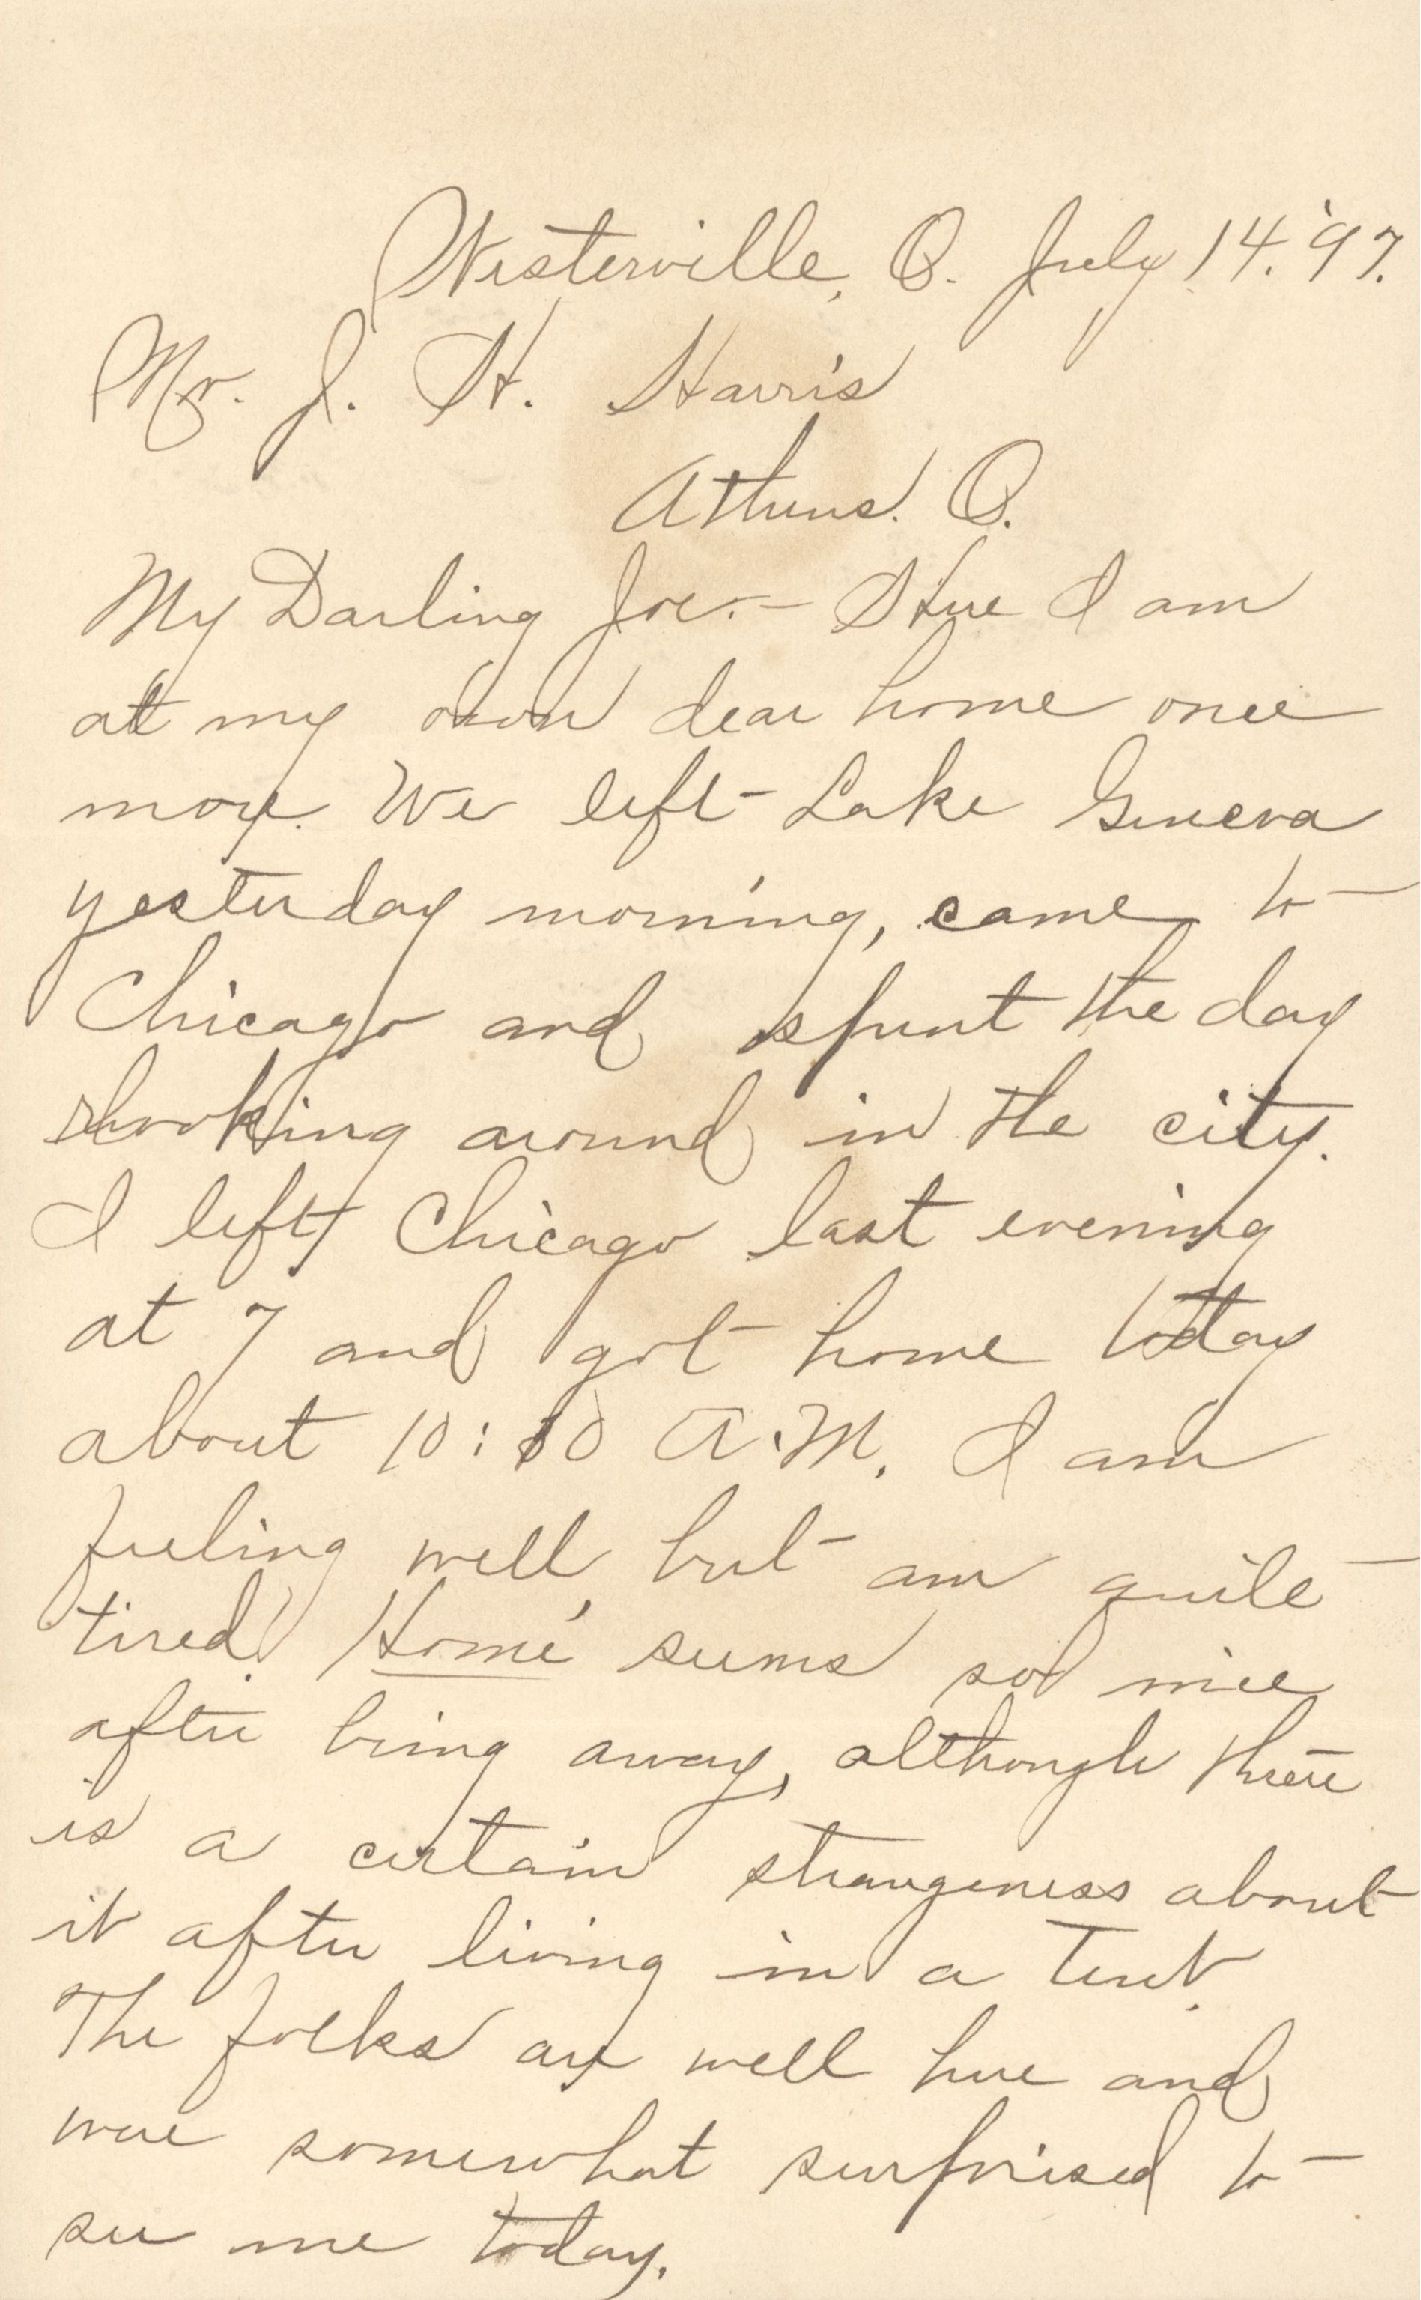 Westerville, O. July 14. '97.
Mr. J. H. Harris
Athens. O.
My Darling Joe:- Here I am
at my own dear home once
more. We left Lake Geneva
yesterday morning, came to
Chicago and spent the day
looking around in the city.
I left Chicago last evening
at 7 and got home today
about 10:10 A.M. I am
feeling well, but am quite
tired. "Home" seems so nice
after being away, although there
is a certain strangeness about
it after living in a tent.
The folks are well here and
were somewhat surprised to
see me today.